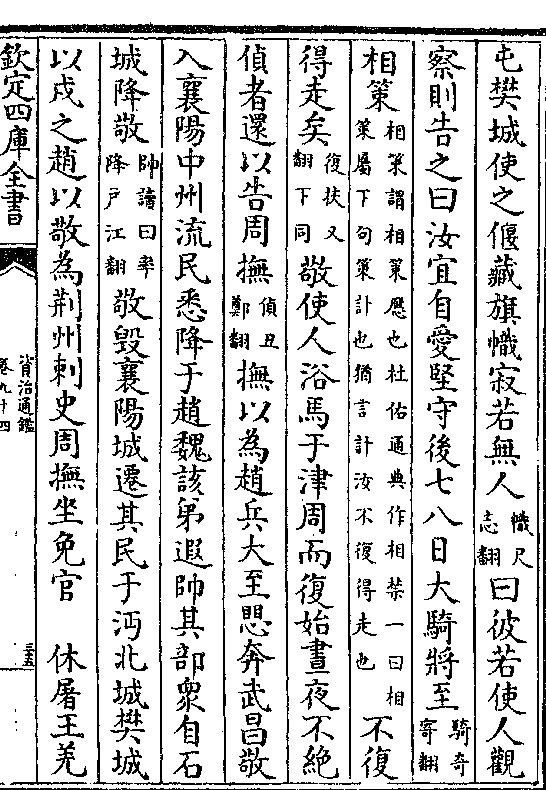 屯樊城使之偃藏旗幟寂若無人幟尺志翻曰彼若使人觀
察則告之曰汝宜自愛堅守後七八日大騎將至騎奇寄翻
相策相策謂相策應也杜佑通典作相禁一曰相策屬下句策計也猶言計汝不復得走也不復
得走矣復扶又翻下同敬使人浴馬于津周而復始晝夜不絶
偵者還以告周撫偵丑鄭翻撫以為趙兵大至愳奔武昌敬
入襄陽中州流民悉降于趙魏該弟遐帥其部衆自石
城降敬帥讀曰率降戸江翻敬毁襄陽城遷其民于沔北城樊城
以戍之趙以敬為荆州刺史周撫坐免官　休屠王羌
欽定四庫全書
資治通鑑
卷九十四
三五